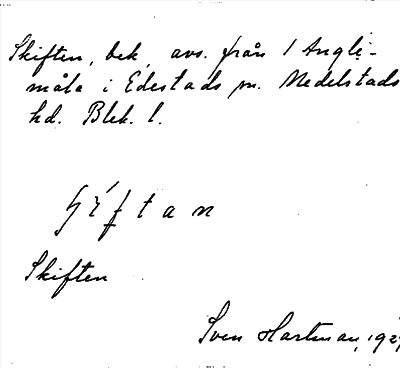 Skiften, bek. avs. från 1 Angli-
måla i Edestads sn. Medelstads
hd. Blek. l.
Skiften
Sven Hartman, 192